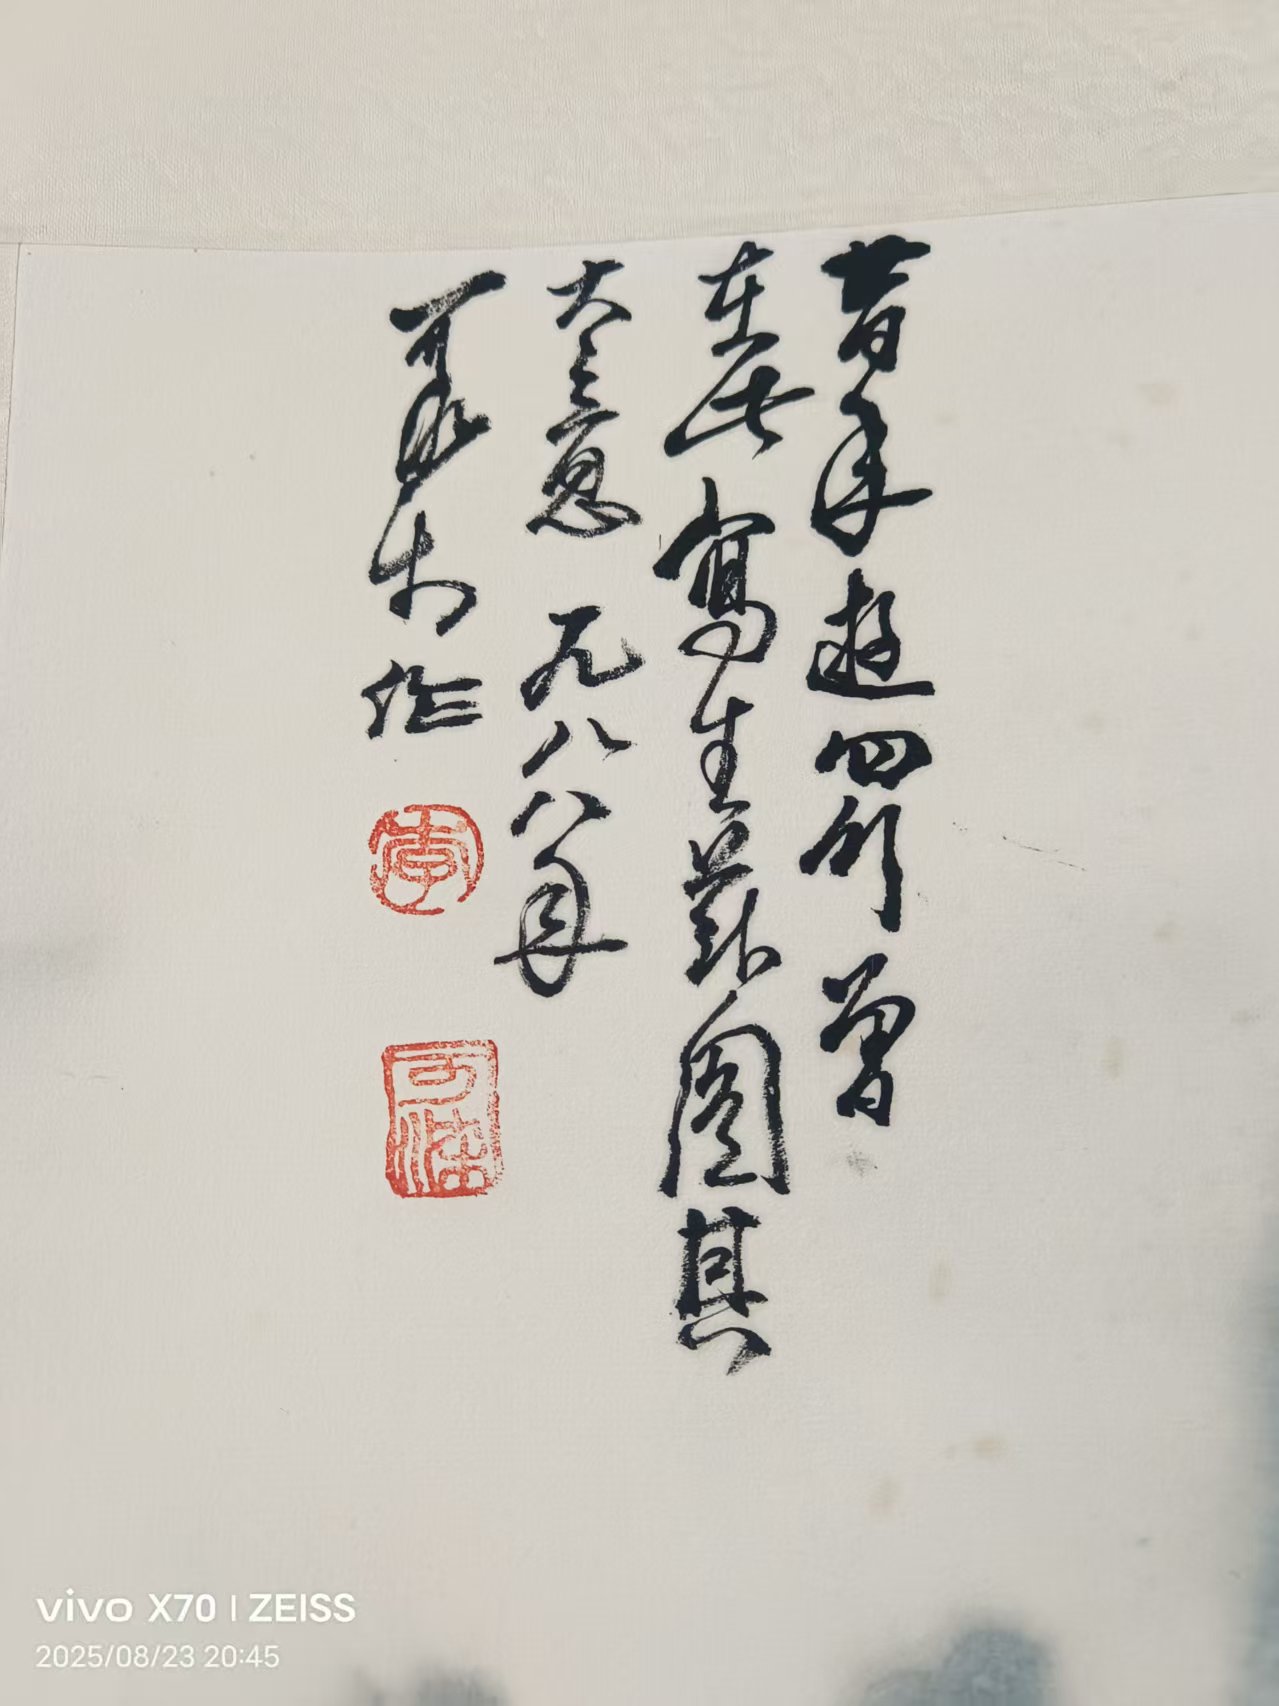 昔年遊四川曾
在此寫生茲圖其
大意 一九八八年
可染作
李
可染
vivo X70 | ZEISS
2025/08/23 20:45